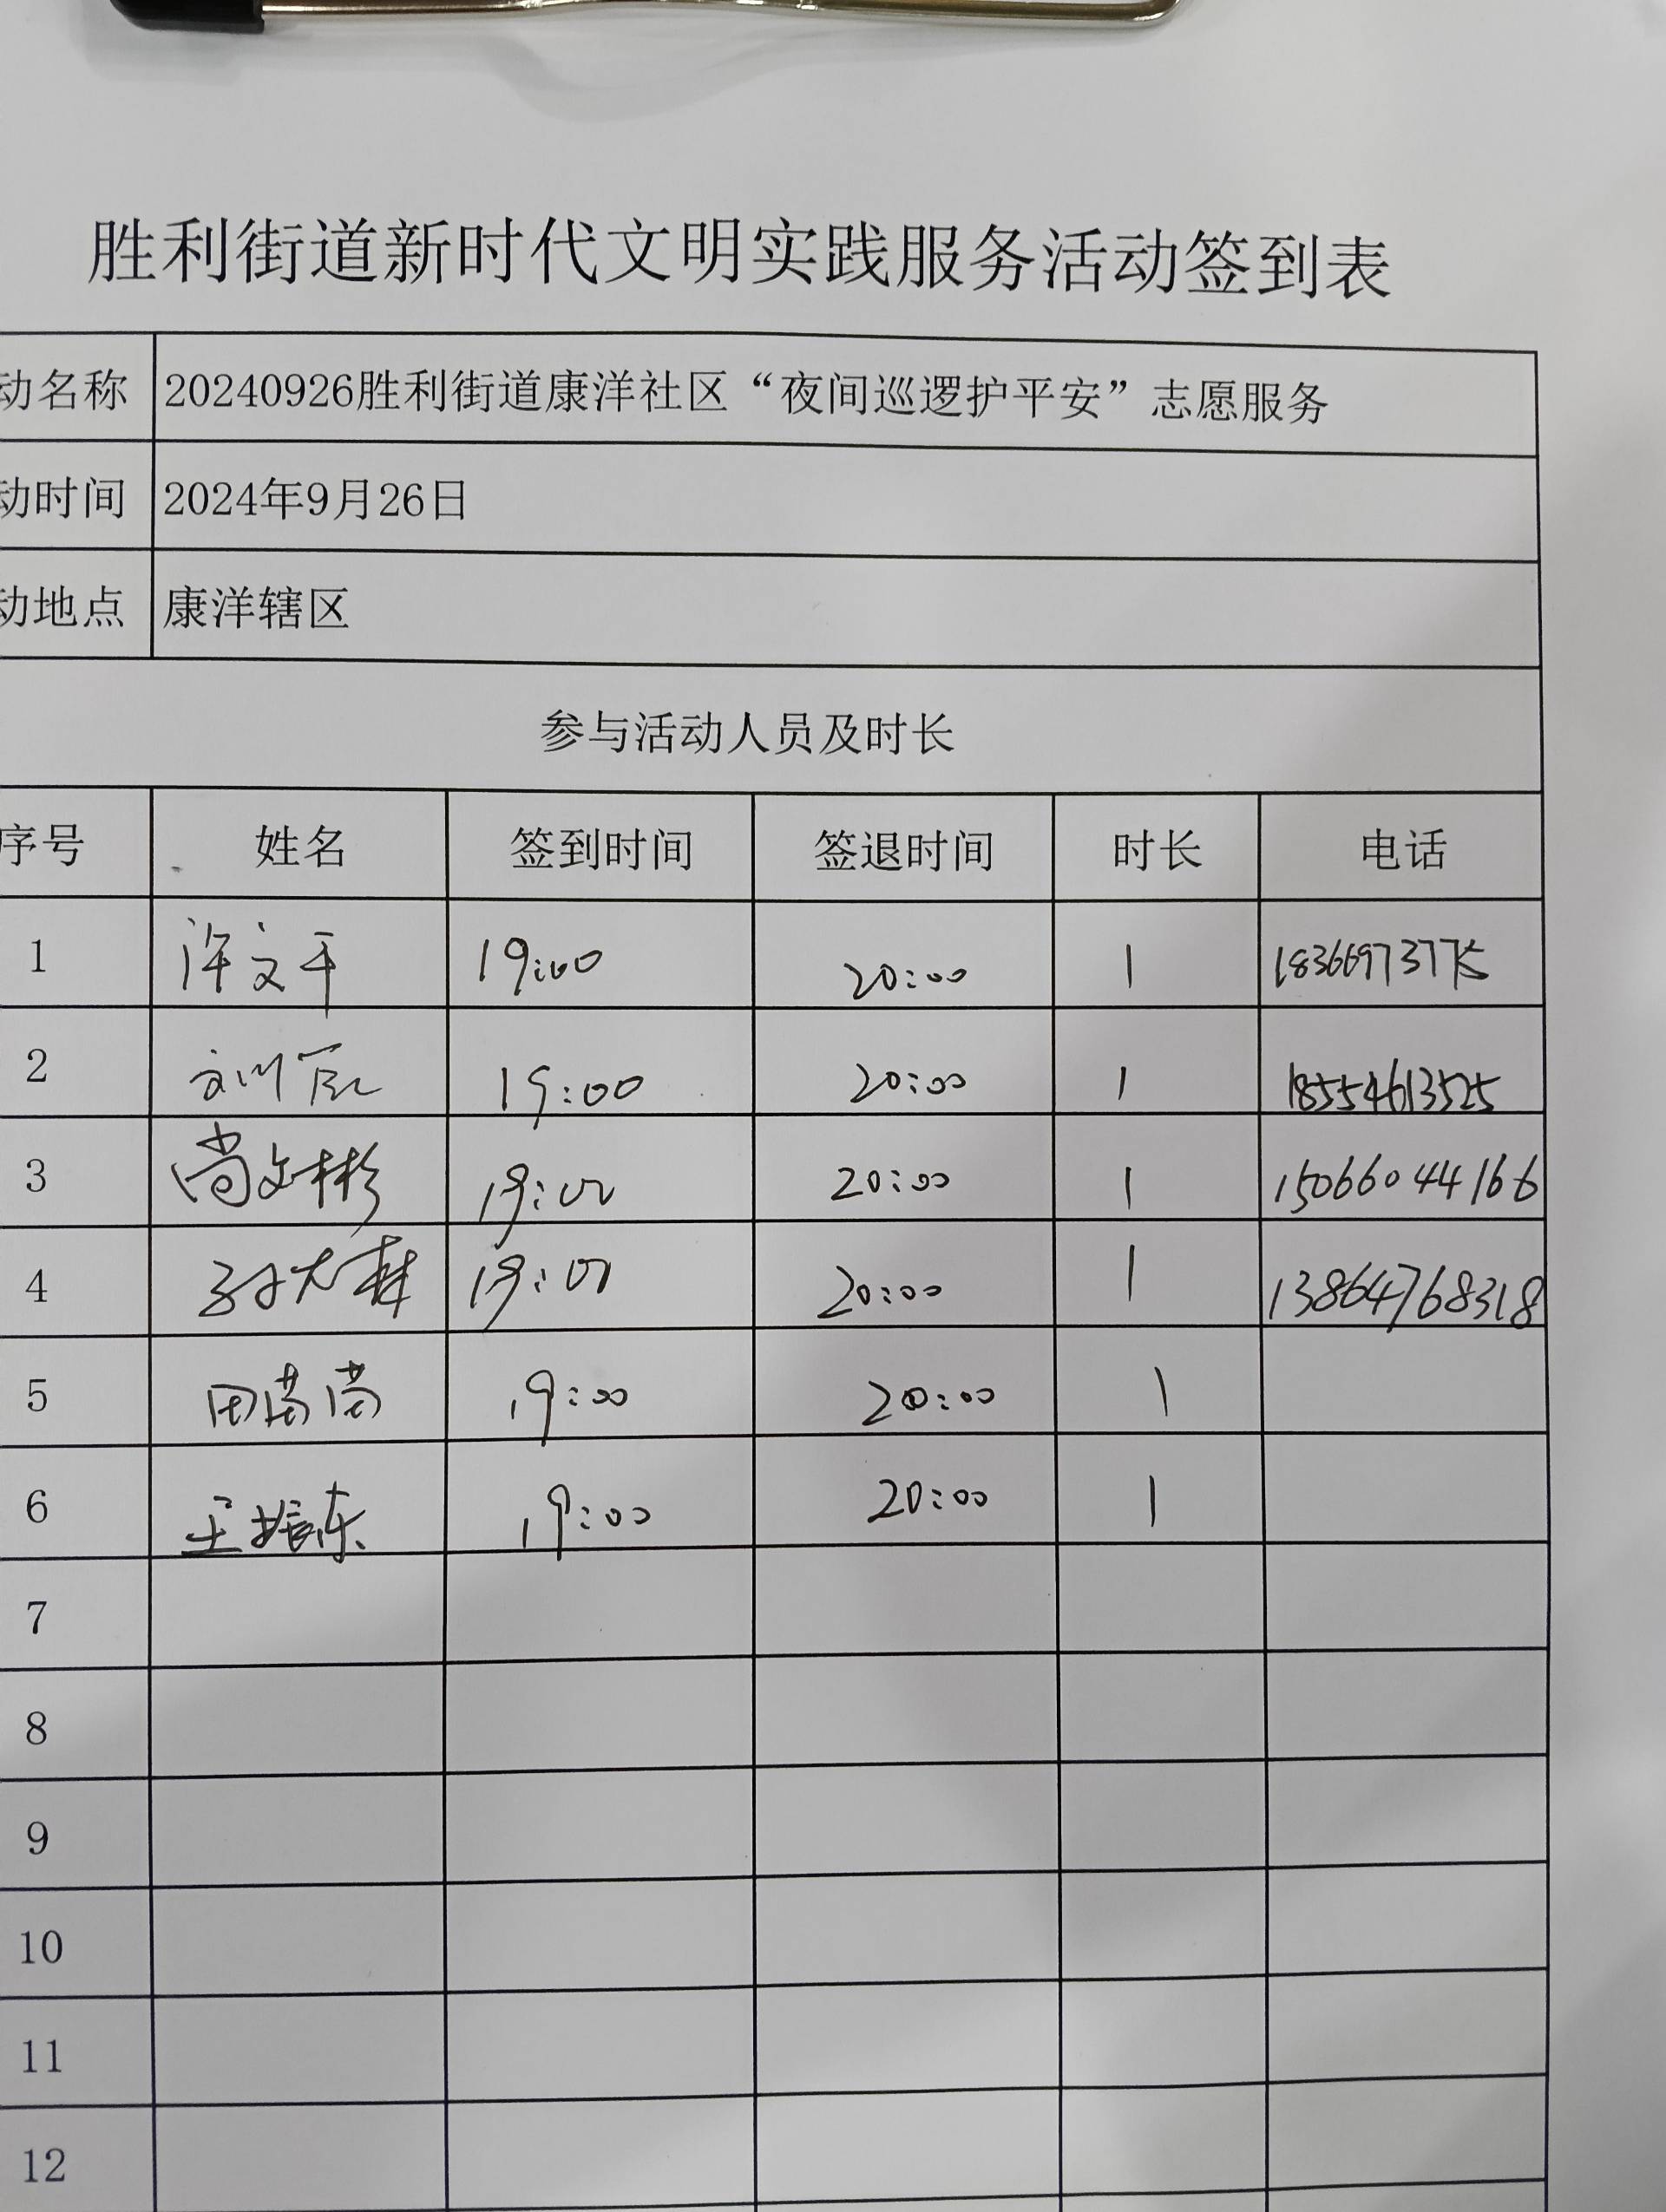 胜利街道新时代文明实践服务活动签到表
动名称 20240926胜利街道康洋社区“夜间巡逻护平安”志愿服务
动时间 2024年9月26日
动地点 康洋辖区
参与活动人员及时长
序号 姓名 签到时间 签退时间 时长 电话
1 许文平 19:00 20:00 1
2 19:00 20:00 1 18554613525
3 尚文彬 19:00 20:00 1 15066044166
4 19:00 20:00 1 13864768318
5 田苗苗 19:00 20:00 1
6 王振东 19:00 20:00 1
7
8
9
10
11
12